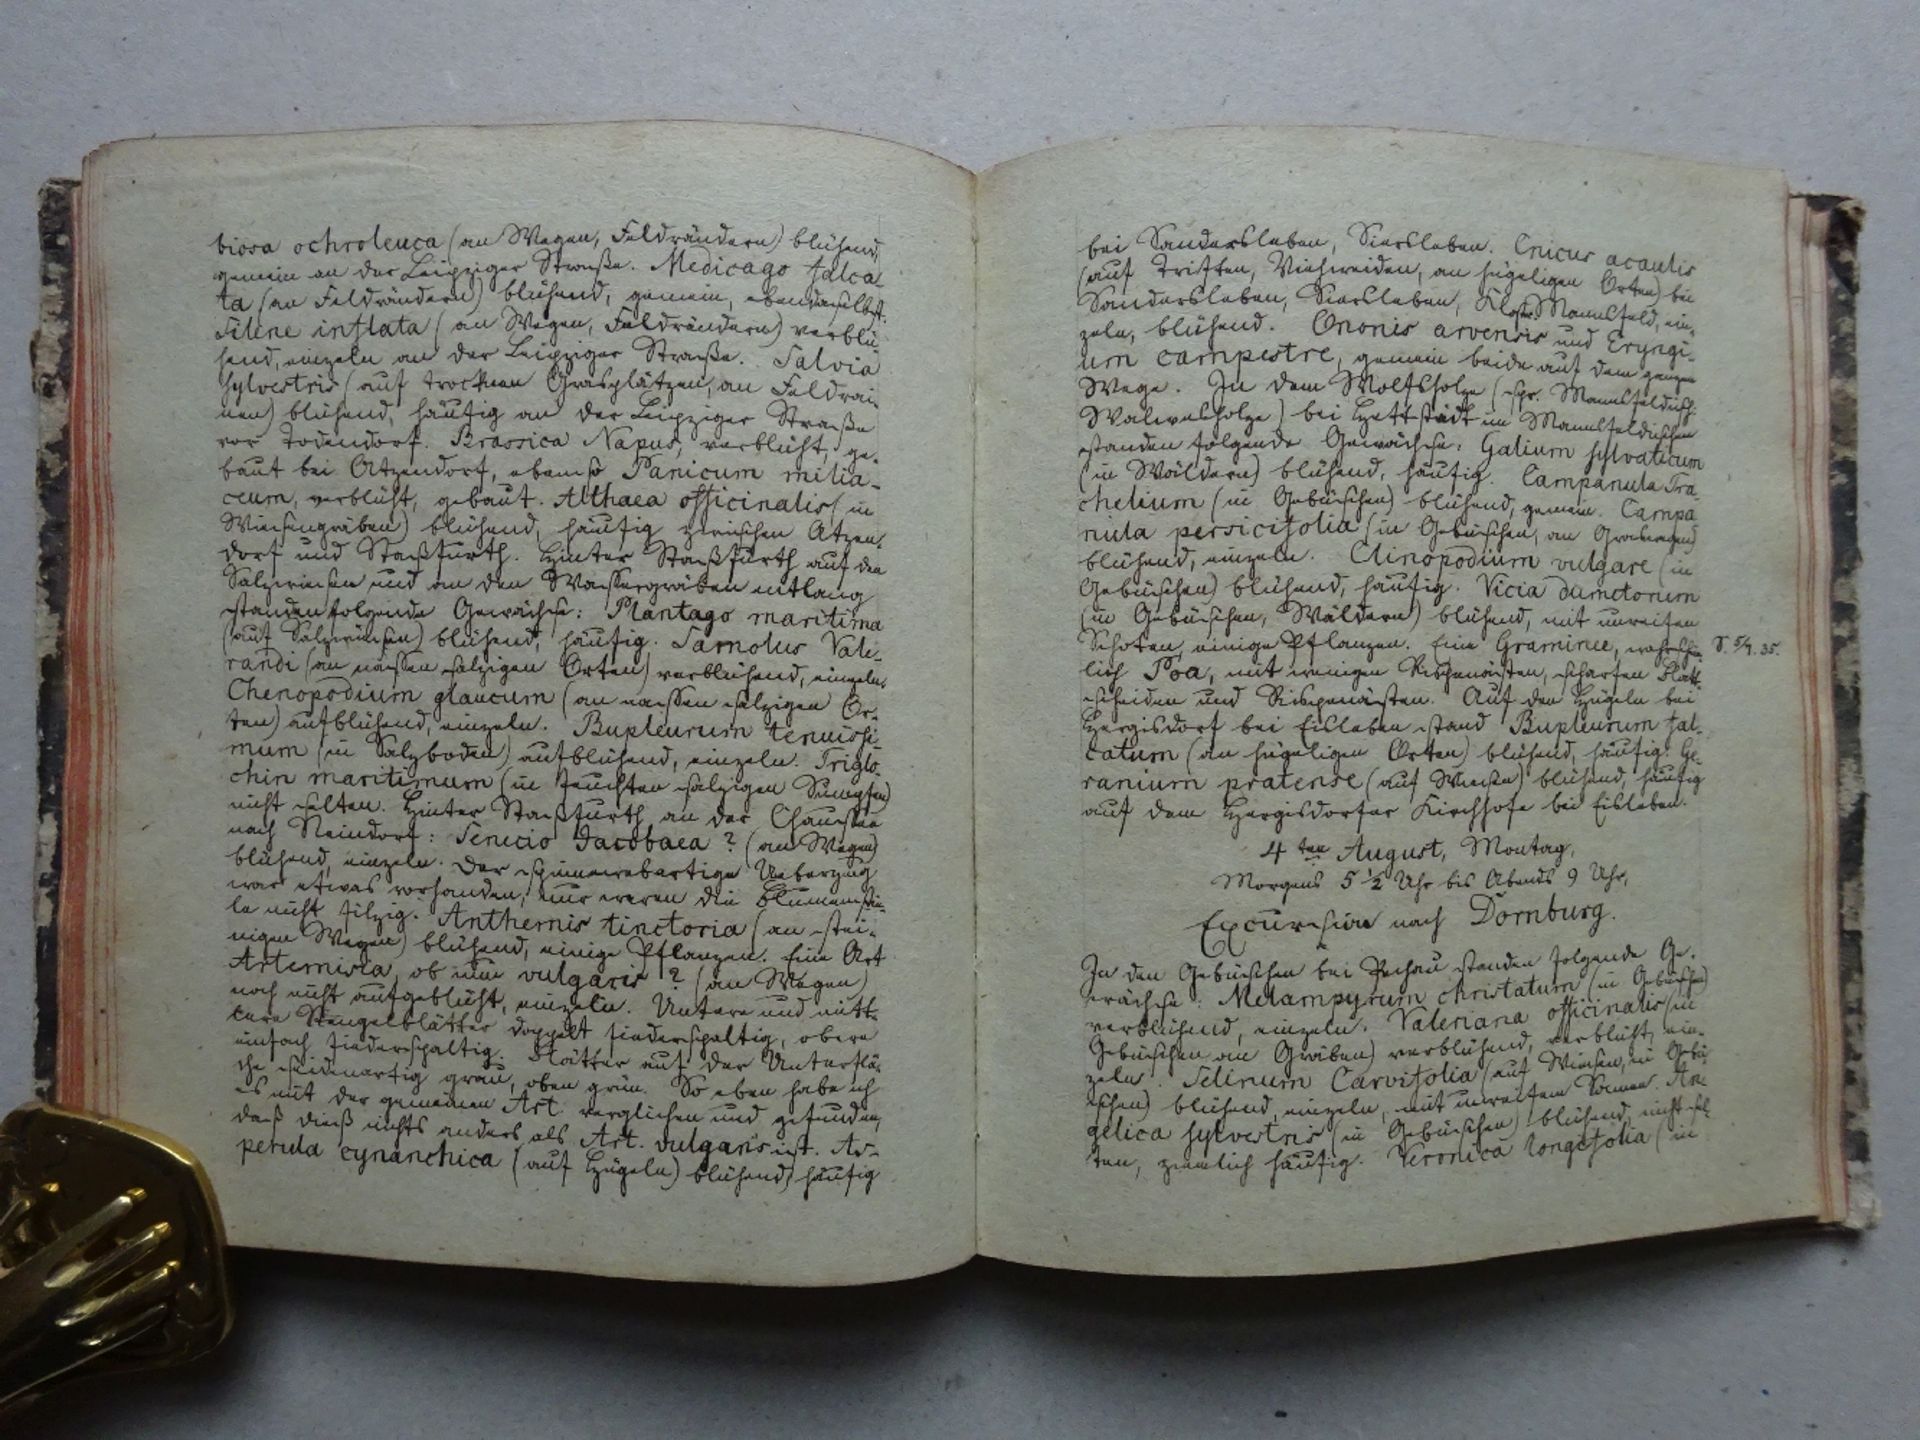 biosa ochroleuca (an Wegen, Feldrändern) blühend,
gemein an der Leipziger Straße. Medicago falca-
ta (an Feldrändern) blühend, gemein, ebendaselbst.
Silene inflata (an Wegen, Feldrändern) verblü-
hend, einzeln an der Leipziger Straße. Salvia
sylvestris (auf trocknen Grasplätzen, an Feldrai-
nen) blühend, häufig an der Leipziger Straße
vor Dodendorf. Brassica Napus, verblüht, ge-
baut bei Atzendorf, ebenso Panicum milia-
ceum, verblüht, gebaut. Althaea officinalis (in
Wiesengräben) blühend, häufig zwischen Atzen-
dorf und Staßfurth. Hinter Staßfurth auf den
Salzwiesen und an den Wassergräben entlang
standen folgende Gewächse: Plantago maritima
(auf Salzwiesen) blühend, häufig. Samolus Vale-
randi (an nassen salzigen Orten) verblühend, einzeln.
Chenopodium glaucum (an nassen salzigen Or-
ten) aufblühend, einzeln. Bupleurum tenuissi-
mum (in Salzboden) aufblühend, einzeln. Triglo-
chin maritimum (in feuchten salzigen Sümpfen)
nicht selten. Hinter Staßfurth an der Chaussee
nach Neindorf: Senecio Jacobaea? (an Wegen)
blühend, einzeln. Der spinnewebartige Ueberzug
war etwas vorhanden, nur waren die Blumenstie-
le nicht filzig. Anthemis tinctoria (an stei-
nigen Wegen) blühend, einige Pflanzen. Eine Art
Artemisia, ob nun vulgaris? (an Wegen)
noch nicht aufgeblüht, einzeln. Untere und mitt-
lere Stengelblätter doppelt fiederspaltig, obere
einfach fiederspaltig. Blätter auf der Unterflä-
che seidenartig grau, oben grün. So eben habe ich
es mit der gemeinen Art. verglichen und gefunden,
daß dieß nichts anders als Art. vulgaris ist. As-
perula cynanchica (auf Hügeln) blühend, häufig
bei Sandersleben, Siersleben. Cnicus acaulis
(auf Triften, Viehweiden, an hügeligen Orten) bei
Sandersleben, Siersleben, Kloster Mansfeld, ein-
zeln, blühend. Ononis arvensis und Eryngi-
um campestre, gemein beide auf dem ganzen
Wege. In dem Wolfsholze (spr. Mannsfeldisch:
Walvesholze) bei Hettstädt im Mannsfeldischen
standen folgende Gewächse: Galium sylvaticum
(in Wäldern) blühend, häufig. Campanula Tra-
chelium (in Gebüschen) blühend, gemein. Campa-
nula persicifolia (in Gebüschen, an Graswegen)
blühend, einzeln. Clinopodium vulgare (in
Gebüschen) blühend, häufig. Vicia dumetorum
(in Gebüschen, Wäldern) blühend, mit unreifen
Schoten, einige Pflanzen. Eine Graminee, wahrschein-
lich Poa, mit wenigen Rispenästen, scharfen Blatt-
scheiden und Rispenästen. Auf den Hügeln bei
Hergisdorf bei Eisleben stand Bupleurum fal-
catum (an hügeligen Orten) blühend, häufig. Ge-
ranium pratense (auf Wiesen) blühend, häufig
auf dem Hergisdorfer Kirchhofe bei Eisleben.
4ten August, Montag,
Morgens 5 1/2 Uhr bis Abends 9 Uhr,
Excursion nach Dornburg.
In den Gebüschen bei Pechau standen folgende Ge-
wächse: Melampyrum christatum (in Gebüschen)
verblühend, einzeln. Valeriana officinalis (in
Gebüschen an Gräben) verblühend, verblüht, ein-
zeln. Selinum Carvifolia (auf Wiesen, in Gebü-
schen) blühend, einzeln, mit unreifem Samen. An-
gelica sylvestris (in Gebüschen) blühend, nicht sel-
ten, ziemlich häufig. Veronica longifolia (in